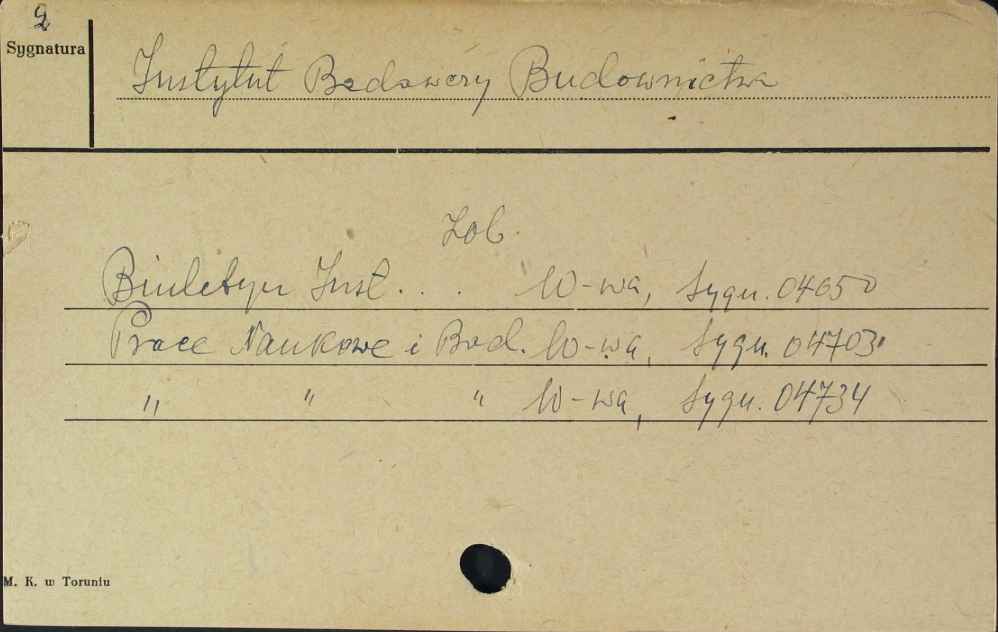 2
Sygnatura
Instytut Badawczy Budownictwa
Zob.
Biuletyn Inst. . . W-wa, Sygn. 04650
Prace Naukowe i Bad. W-wa, Sygn. 04703.
" " " W-wa, Sygn. 04734
M. K. w Toruniu